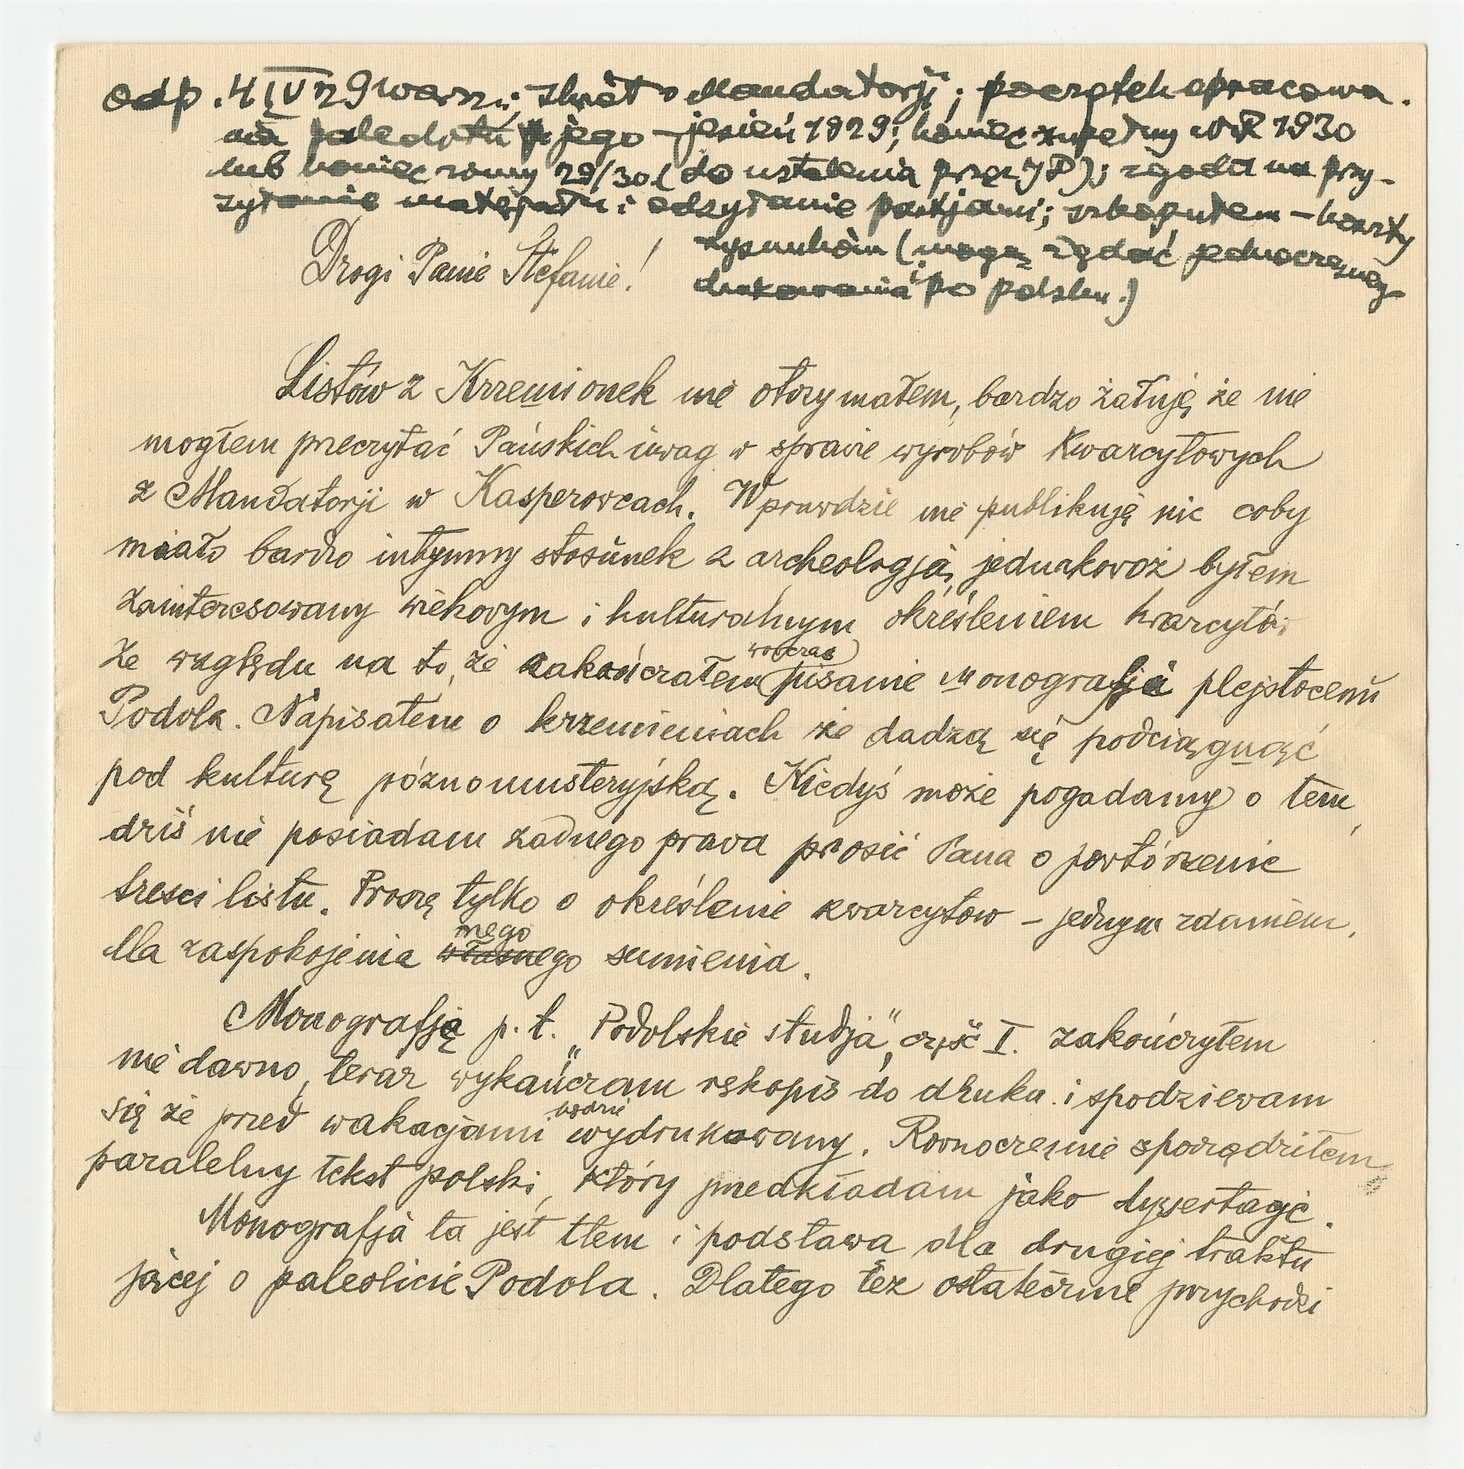 odp. 4 IV 29 Warsz; zwrot o Mandatorji; początek opracowa-
nia paleolitu jego – jesień 1929; koniec zupełny 1930
lub koniec zimy 29/30 (do ustalenia przez JP); zgoda na przy-
syłanie materjału i odsyłanie partjami; – koszty
rysunków (mogą żądać jednoczesnego
drukowania po polsku.)
Drogi Panie Stefanie!
Listów z Krzemionek nie otrzymałem, bardzo żałuję, że nie
mogłem przeczytać Pańskich uwag w sprawie wyrobów kwarcytowych
z Mandatorji w Kasperowcach. Wprawdzie nie publikuję nic coby
miało bardzo intymny stosunek z archeologją, jednakowoż byłem
zainteresowany wiekowym i kulturalnym określeniem kwarcytów
ze względu na to, że zakańczałem wówczas pisanie monografji plejstocenu
Podola. Napisałem o krzemieniach że dadzą się podciągnąć
pod kulturę późnomusteryjską. Kiedyś może pogadamy o tem,
dziś nie posiadam żadnego prawa prosić Pana o powtórzenie
treści listu. Proszę tylko o określenie kwarcytów – jednym zdaniem,
dla zaspokojenia własnego mego sumienia.
Monografję p. t. „Podolskie studja", część I. zakończyłem
nie dawno, teraz wykańczam rękopis do druku i spodziewam
się że przed wakacjami będzie wydrukowany. Równocześnie sporządziłem
paralelny tekst polski, który przedkładam jako dyzertację.
Monografja ta jest tłem i podstawą dla drugiej traktu
jącej o paleolicie Podola. Dlatego też ostatecznie przychodzi